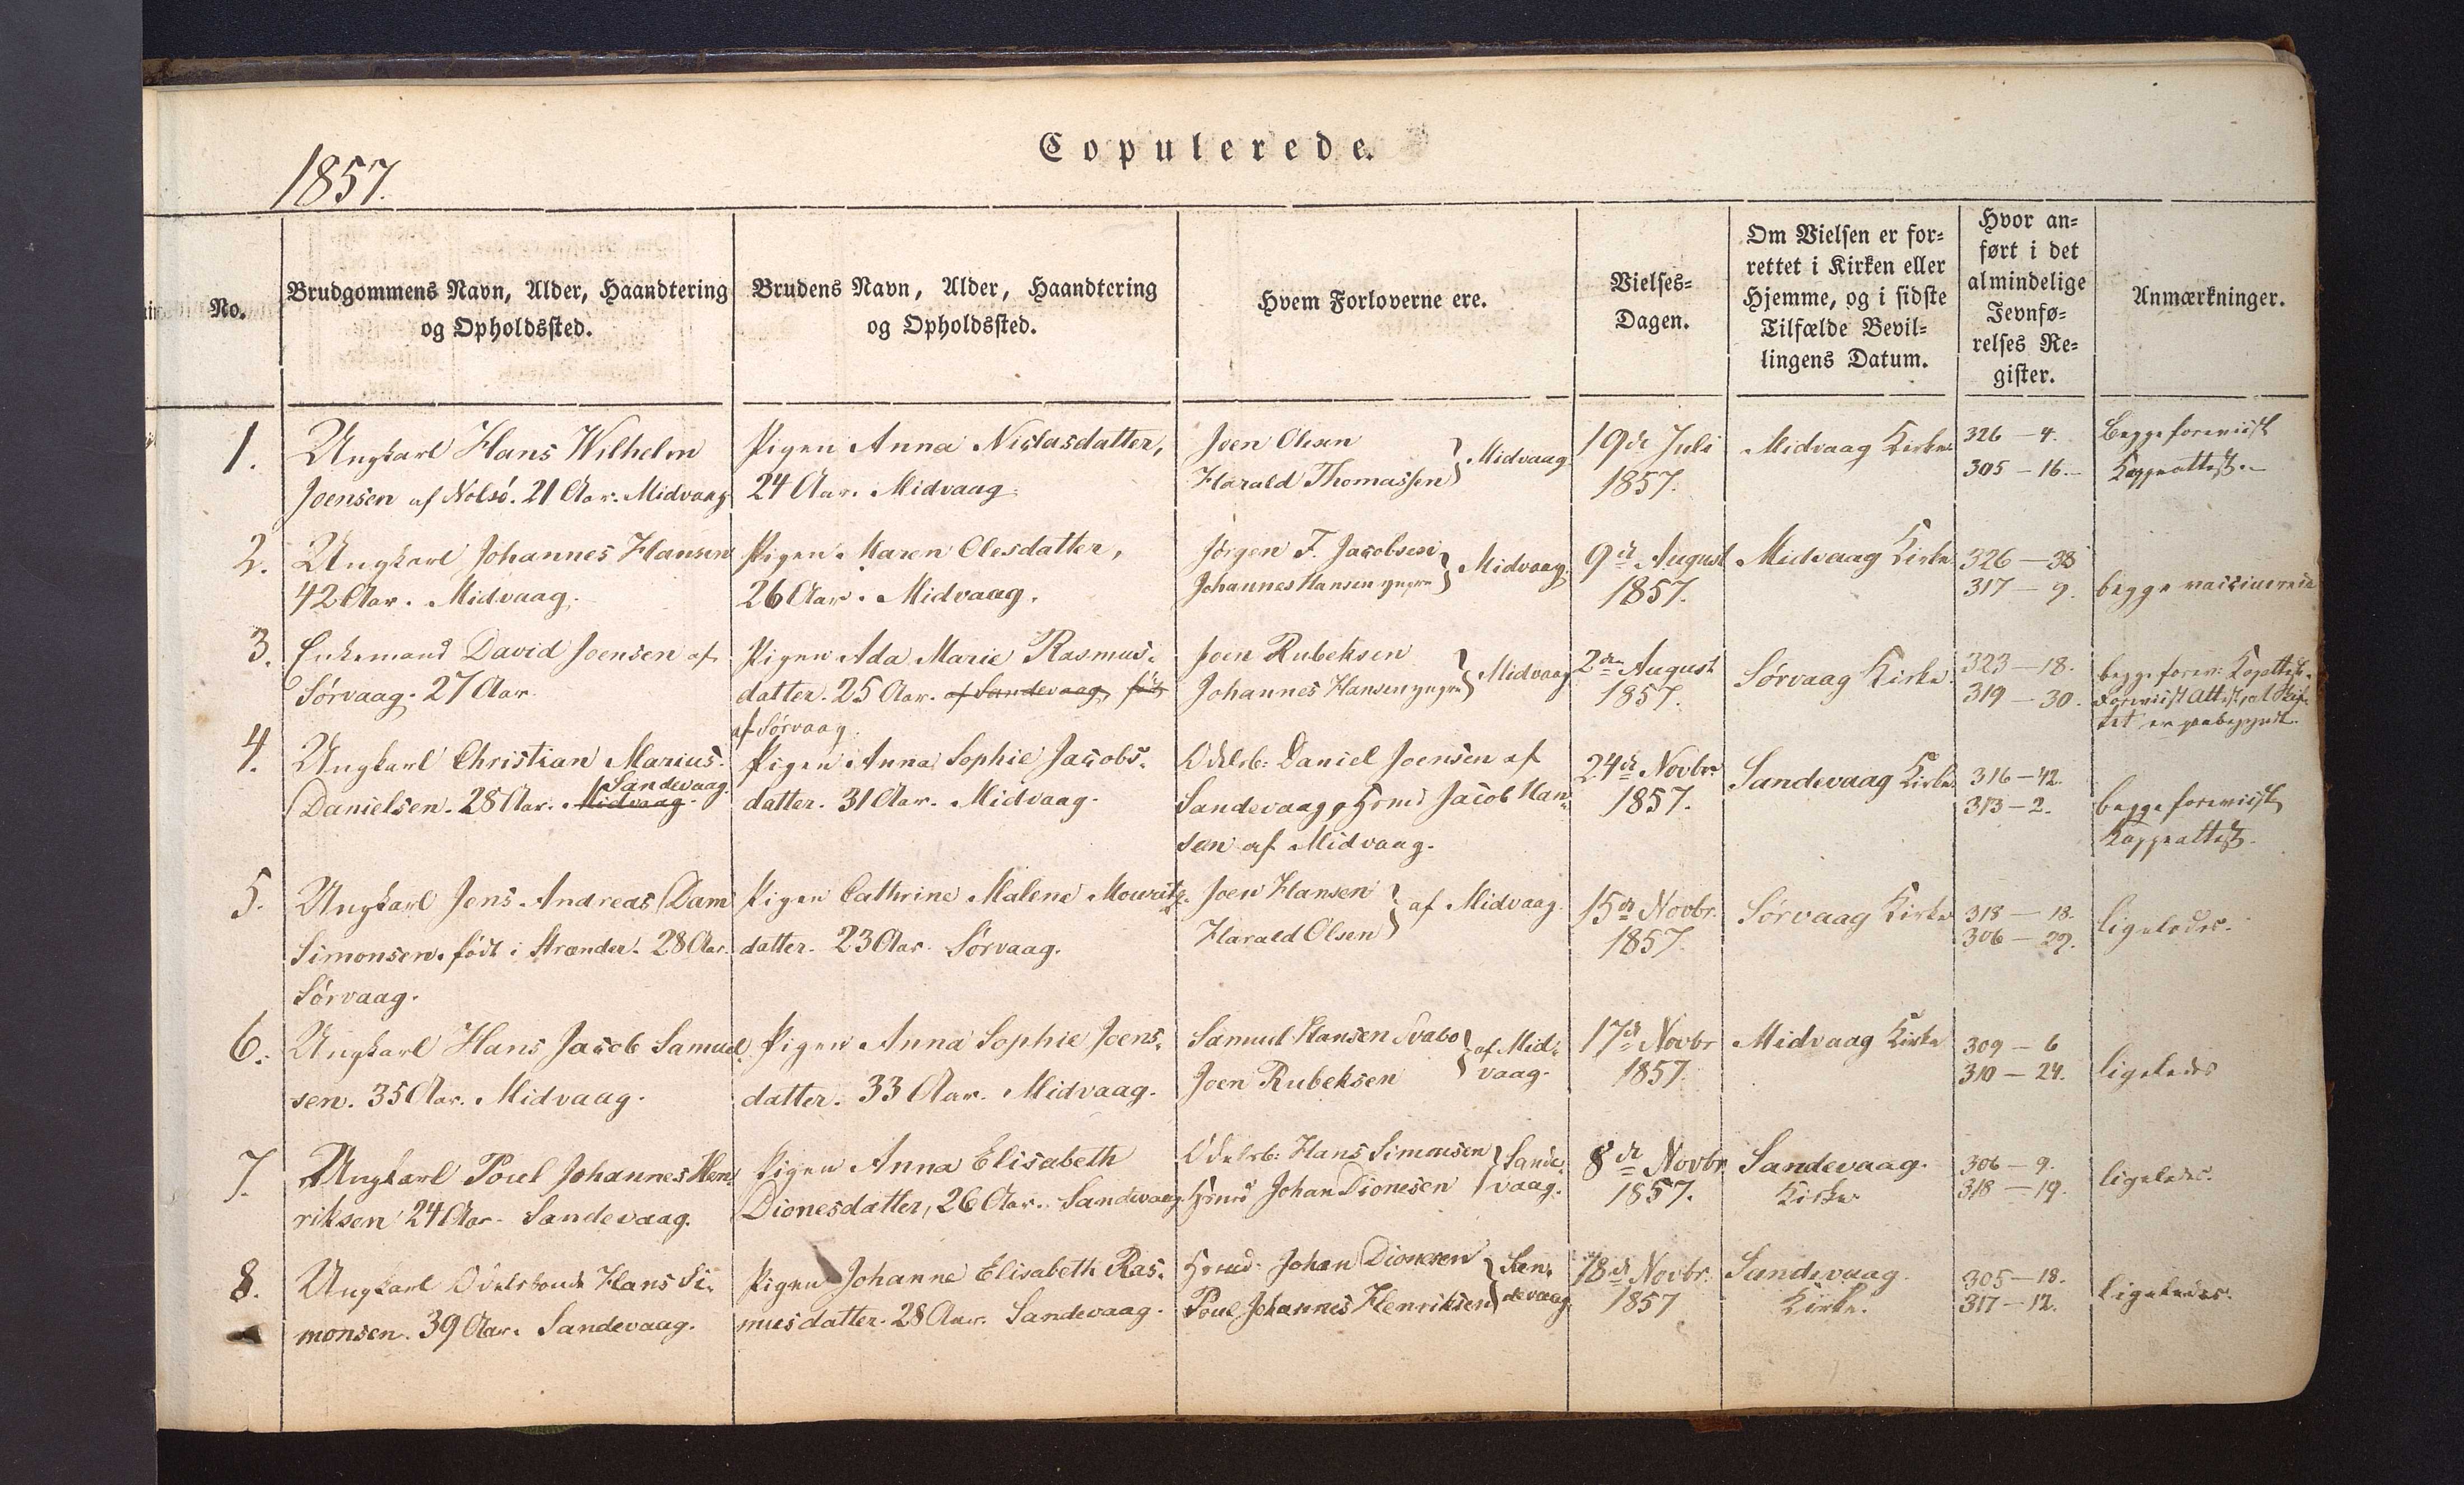 Copulerede.
1857.
No.
Brudgommens Navn, Alder, Haandtering
og Opholdssted.
Brudens Navn, Alder, Haandtering
og Opholdssted.
Hvem Forloverne ere.
Vielses-
Dagen.
Om Vielsen er for-
rettet i Kirken eller
Hjemme, og i sidste
Tilfælde Bevil-
lingens Datum.
Hvor an-
ført i det
almindelige
Jevnfø-
relses Re-
gister.
Anmærkninger.
1.
Ungkarl Hans Wilhelm
Joensen af Nolsö. 21 Aar. Midvaag
Pigen Anna Niclasdatter,
24 Aar. Midvaag
Joen Olesen
Harald Thomassen
Midvaag
19de Juli
1857.
Midvaag Kirke
326 - 4.
305 - 16.
Begge foreviist
Koppeattest.
2.
Ungkarl Johannes Hansen
42 Aar. Midvaag.
Pigen Karen Olesdatter,
26 Aar. Midvaag.
Jörgen F. Jacobsen
Johannes Hansen yngre
Midvaag.
9de August
1857.
Midvaag Kirke
326 - 38
317 - 9.
begge vaccinerede
3.
Enkemand David Joensen af
Sörvaag. 27 Aar.
Pigen Ada Marie Rasmus-
datter. 25 Aar. af Sandevaag, föd
af Sörvaag.
Joen Rubeksen
Johannes Hansen yngre
Midvaag
2den August
1857.
Sörvaag Kirke.
323 - 18.
319 - 30.
begge forev: Kopattest.
Foreviist Attest, at Skif-
tet er paabegyndt.
4.
Ungkarl Christian Marius
Sandevaag.
Danielsen. 28 Aar. Midvaag.
Pigen Anna Sophie Jacobs-
datter. 31 Aar. Midvaag.
Odelsb: Daniel Joensen af
Sandevaag, Hsmd Jacob Han-
sen af Midvaag.
24de Novbr
1857.
Sandevaag Kirke
316 - 42.
313 - 2.
begge foreviist
Koppeattest.
5.
Ungkarl Jens Andreas Dam
Simonsen. födt i Strænder. 28 Aar.
Sörvaag.
Pigen Cathrine Malene Mourits-
datter. 23 Aar. Sörvaag.
Joen Hansen
Harald Olsen
af Midvaag.
15de Novbr.
1857.
Sörvaag Kirke
318 - 18.
306 - 29.
ligeledes.
6.
Ungkarl Hans Jacob Samuel-
sen. 35 Aar. Midvaag.
Pigen Anna Sophie Joens-
datter. 33 Aar. Midvaag.
Samuel Hansen Svabo
Joen Rubeksen
af Mid-
vaag.
17de Novbr
1857.
Midvaag Kirke
309 - 6
310 - 24.
ligeledes
7.
Ungkarl Poul Johannes Hen-
riksen 24 Aar. Sandevaag.
Pigen Anna Elisabeth
Dionesdatter, 26 Aar. Sandevaag.
Odelsb: Hans Simonsen
Hsmd Johan Dionesen
Sande-
vaag.
8de Novbr
1857.
Sandevaag.
Kirke
306 - 9.
318 - 19.
ligeledes.
8.
Ungkarl Odelsbonde Hans Si-
monsen. 39 Aar. Sandevaag.
Pigen Johanne Elisabeth Ras-
musdatter. 28 Aar. Sandevaag.
Hsmd. Johan Dionesen
Poul Johannes Henriksen
San-
devaag.
18de Novbr.
1857
Sandevaag.
Kirke.
305 - 18.
317 - 12.
ligeledes.